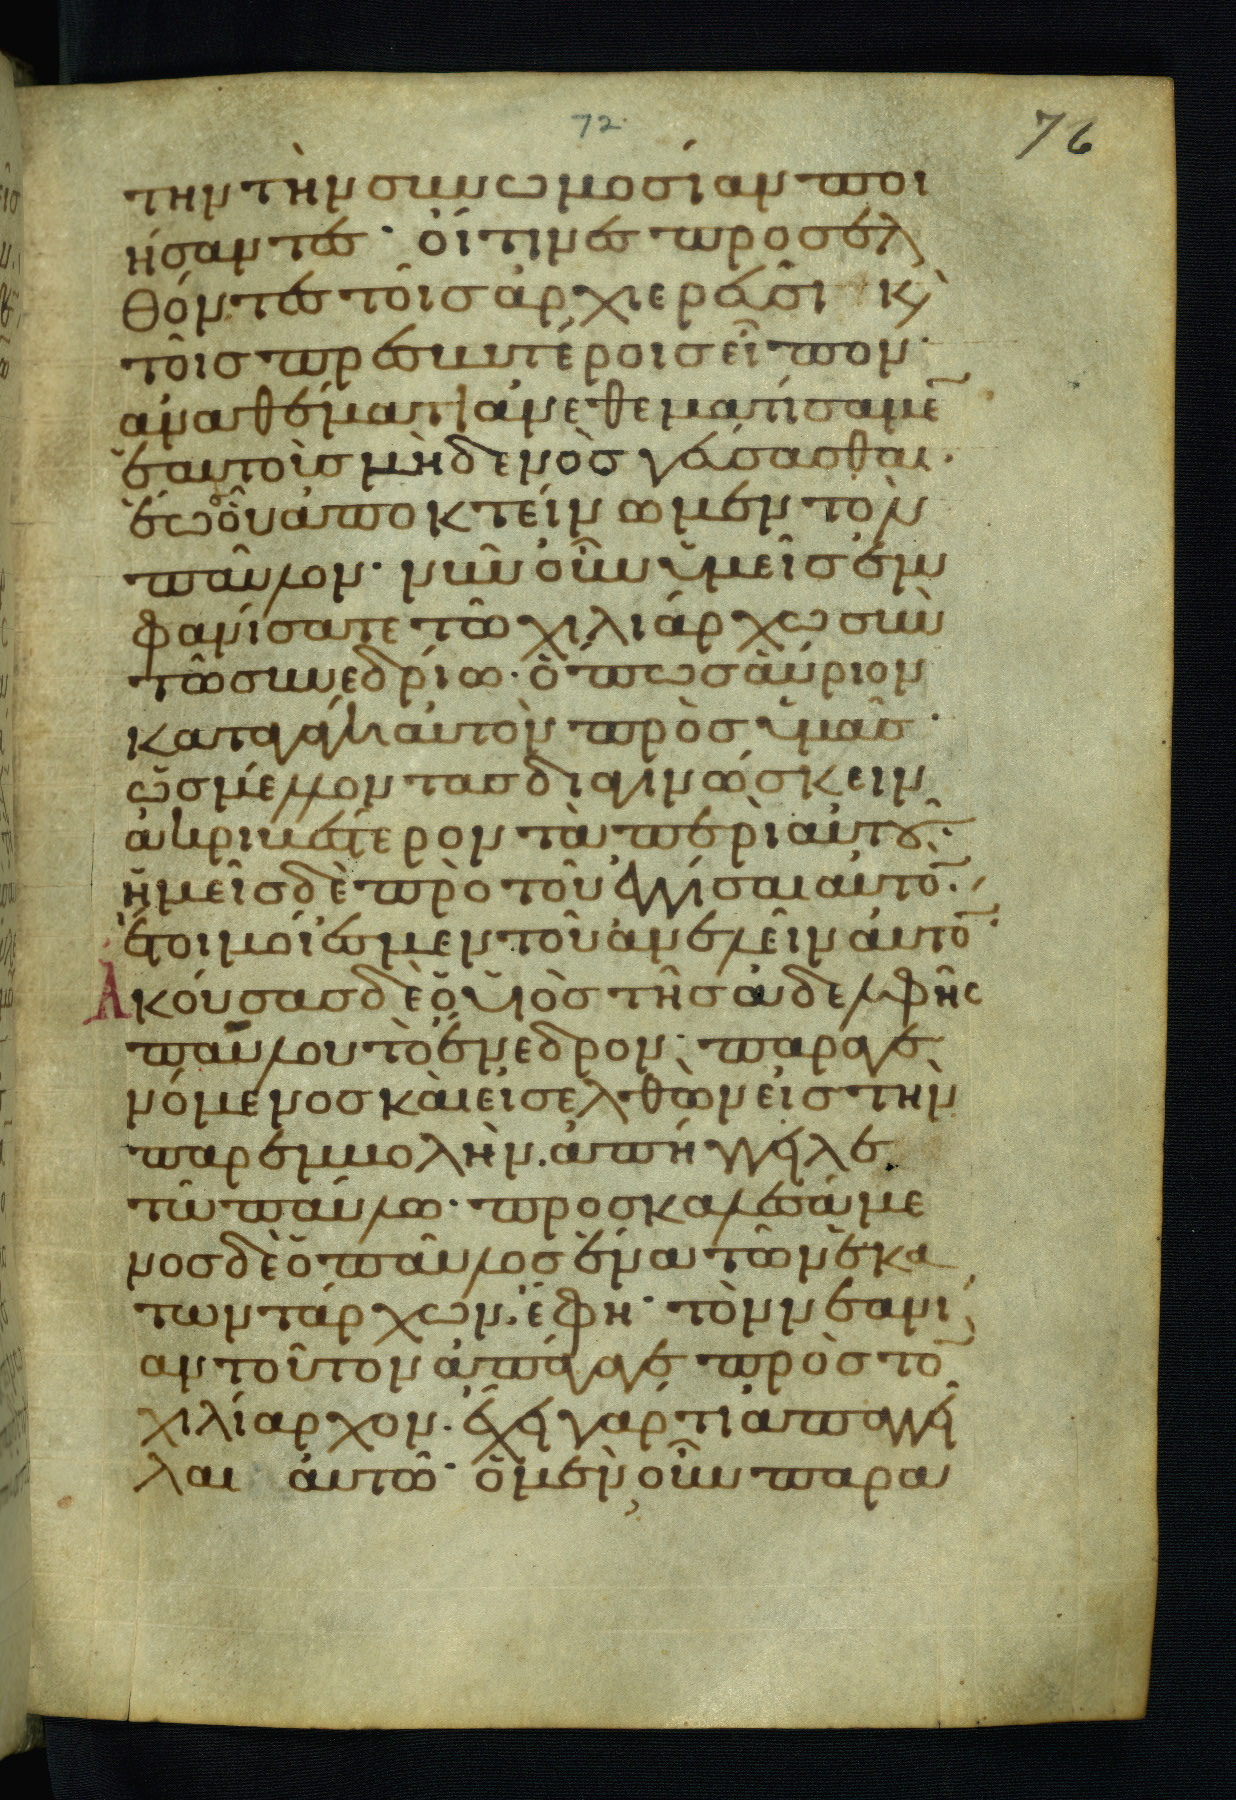 72.
76
την τὴν συνωμοσίαν ποι
ήσαντες· οἵτινες προσελ
θόντες τοῖς ἀρχιερεῦσι κ̀
τοῖς πρεσβυτέροις εἶπον·
ἀναθέματι ἀνεθεματίσαμε̅
ἑαυτοὺς μηδενὸς γεύσασθαι·
ἕως οὗ ἀποκτείνωμεν τὸν
παῦλον· νῦν οὖν ὑμεῖς ἐμ
φανίσατε τῶ χιλιάρχω σὺν
τῶ συνεδρίω· ὅπως αὔριον
καταγάγη αὐτὸν πρὸς ὑμᾶς·
ὡς μέλλοντας διαγινώσκειν
ἀκριβέστερον τὰ περὶ αὐτοῦ·
ἡμεῖς δὲ πρὸ τοῦ ἐγγίσαι αὐτο̅·
ἕτοιμοί ἐσμεν τοῦ ἀνελεῖν αὐτο̅·
Ἀκούσας δὲ ὁ υἱὸς τῆς ἀδελφῆς
παύλου τὸ ἔνεδρον· παραγε
νόμενος καὶ εἰσελθὼν εἰς τὴν
παρεμβολὴν. ἀπήγγειλε
τῶ παύλω· προσκαλεσάμε
νος δὲ ὁ παῦλος ἕνα τῶν ἑκα
τωντάρχων. ἔφη· τὸν νεανί
αν τοῦτον ἀπάγαγε πρὸς το̅
χιλίαρχον. ἔχει γάρ τι ἀπαγγεῖ
λαι αὐτῶ· ὁ μὲν οὖν παρα